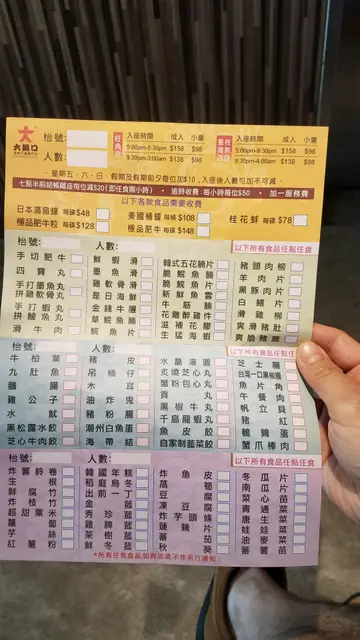 大鍋口
枱號:
人數:
旺角店
入座時間 成人 小童
5:00pm-9:30pm $158 $98
9:30pm-3:00am $138 $98
佐敦店
入座時間 成人 小童
5:00pm-9:30pm $158 $98
9:30pm-4:00am $138 $98
星期五、六、日、假期及有期前夕每位加$10,入座後人數可加不可減。
七點半前結帳離座每位減$20(即任食兩小時) · 逾時收費:每小時每位$50 · 加一服務費
以下各款食品需要收費
日本廣島蠔 每碟$48
美國桶蠔 每桶$108
桂花蚌 每碟$78
極品肥牛粒 每碟$128
極品肥牛 每碟$148
枱號: 人數:
以下所有食品任點任食
手切肥牛
鮮蝦滑
韓式五花腩片
豬頸肉柳
四寶丸
墨魚滑
脆鯇魚腩
羊肉片
手打墨魚丸
是日海鮮
新鮮魚雲
黑豚肉片
白鱔片
牛筋腩
滑雞柳
手打蝦丸
金錢牛𦟌
花雕醉雞件
爽滑豬肚
滋補花膠
爽脆豬膶
滑牛肉
鯇魚腩
生猛海蝦
枱號: 人數:
以下所有食品任點任食
牛柏葉
豬皮
水晶湯圓
芝士腸
九肚魚
吊桶仔
炙燒芝心丸
台灣一口黑椒腸
鵝腸
木耳
蟹粉包心丸
魚片角
雞公子
油炸鬼
貢丸
午餐肉
水魷
豬粉腸
黑椒牛丸
帆立貝
黑松露水餃
潮州白魚蛋
千島龍蝦丸
豬紅
芝心牛肉餃
海帶結
魚皮餃
鵪鶉蛋
自家制韮菜餃
蟹爪棒
以下所有食品任點任食
炸響鈴卷
韓國年糕
炸魚皮
冬瓜片
生根
稻庭烏冬
萵筍
南瓜片
鮮腐竹
出前一丁
豆腐
菜心
鮮枝竹
金菇
凍豆腐
青瓜
甜粟米
秀珍菇
炸芋條
唐生菜
蘿蔔
雞髀菇
芋頭片
娃娃菜
芋絲
鮮冬菇
蓮藕片
油麥菜
紅薯粉
茄
番薯苗
*所有任食食品,如有沽清,不作另行通知